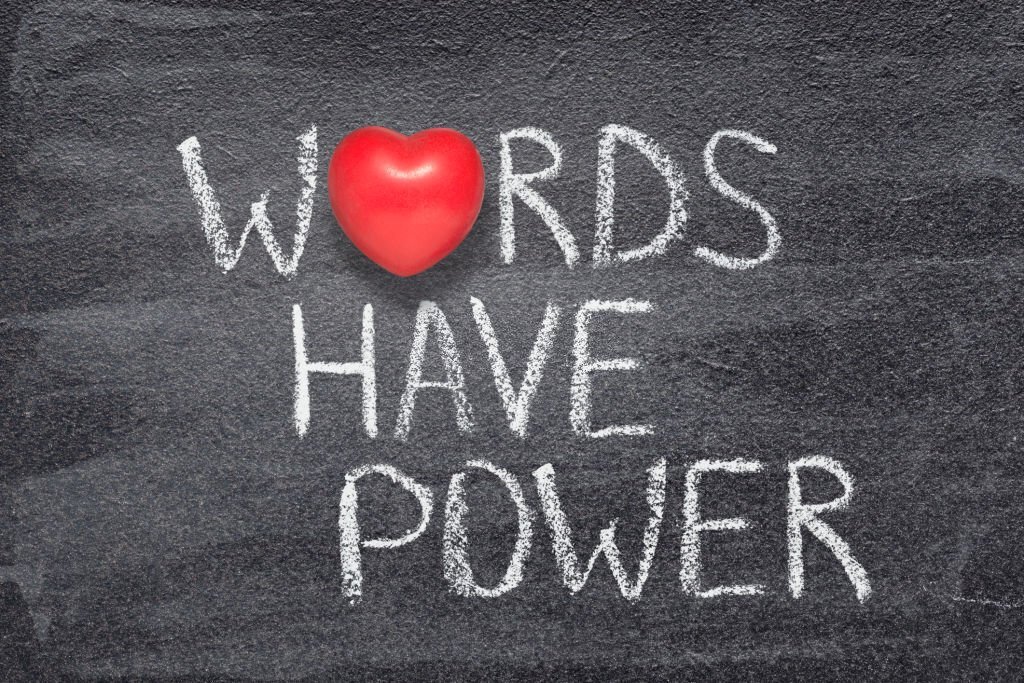 W❤RDS
HAVE
POWER